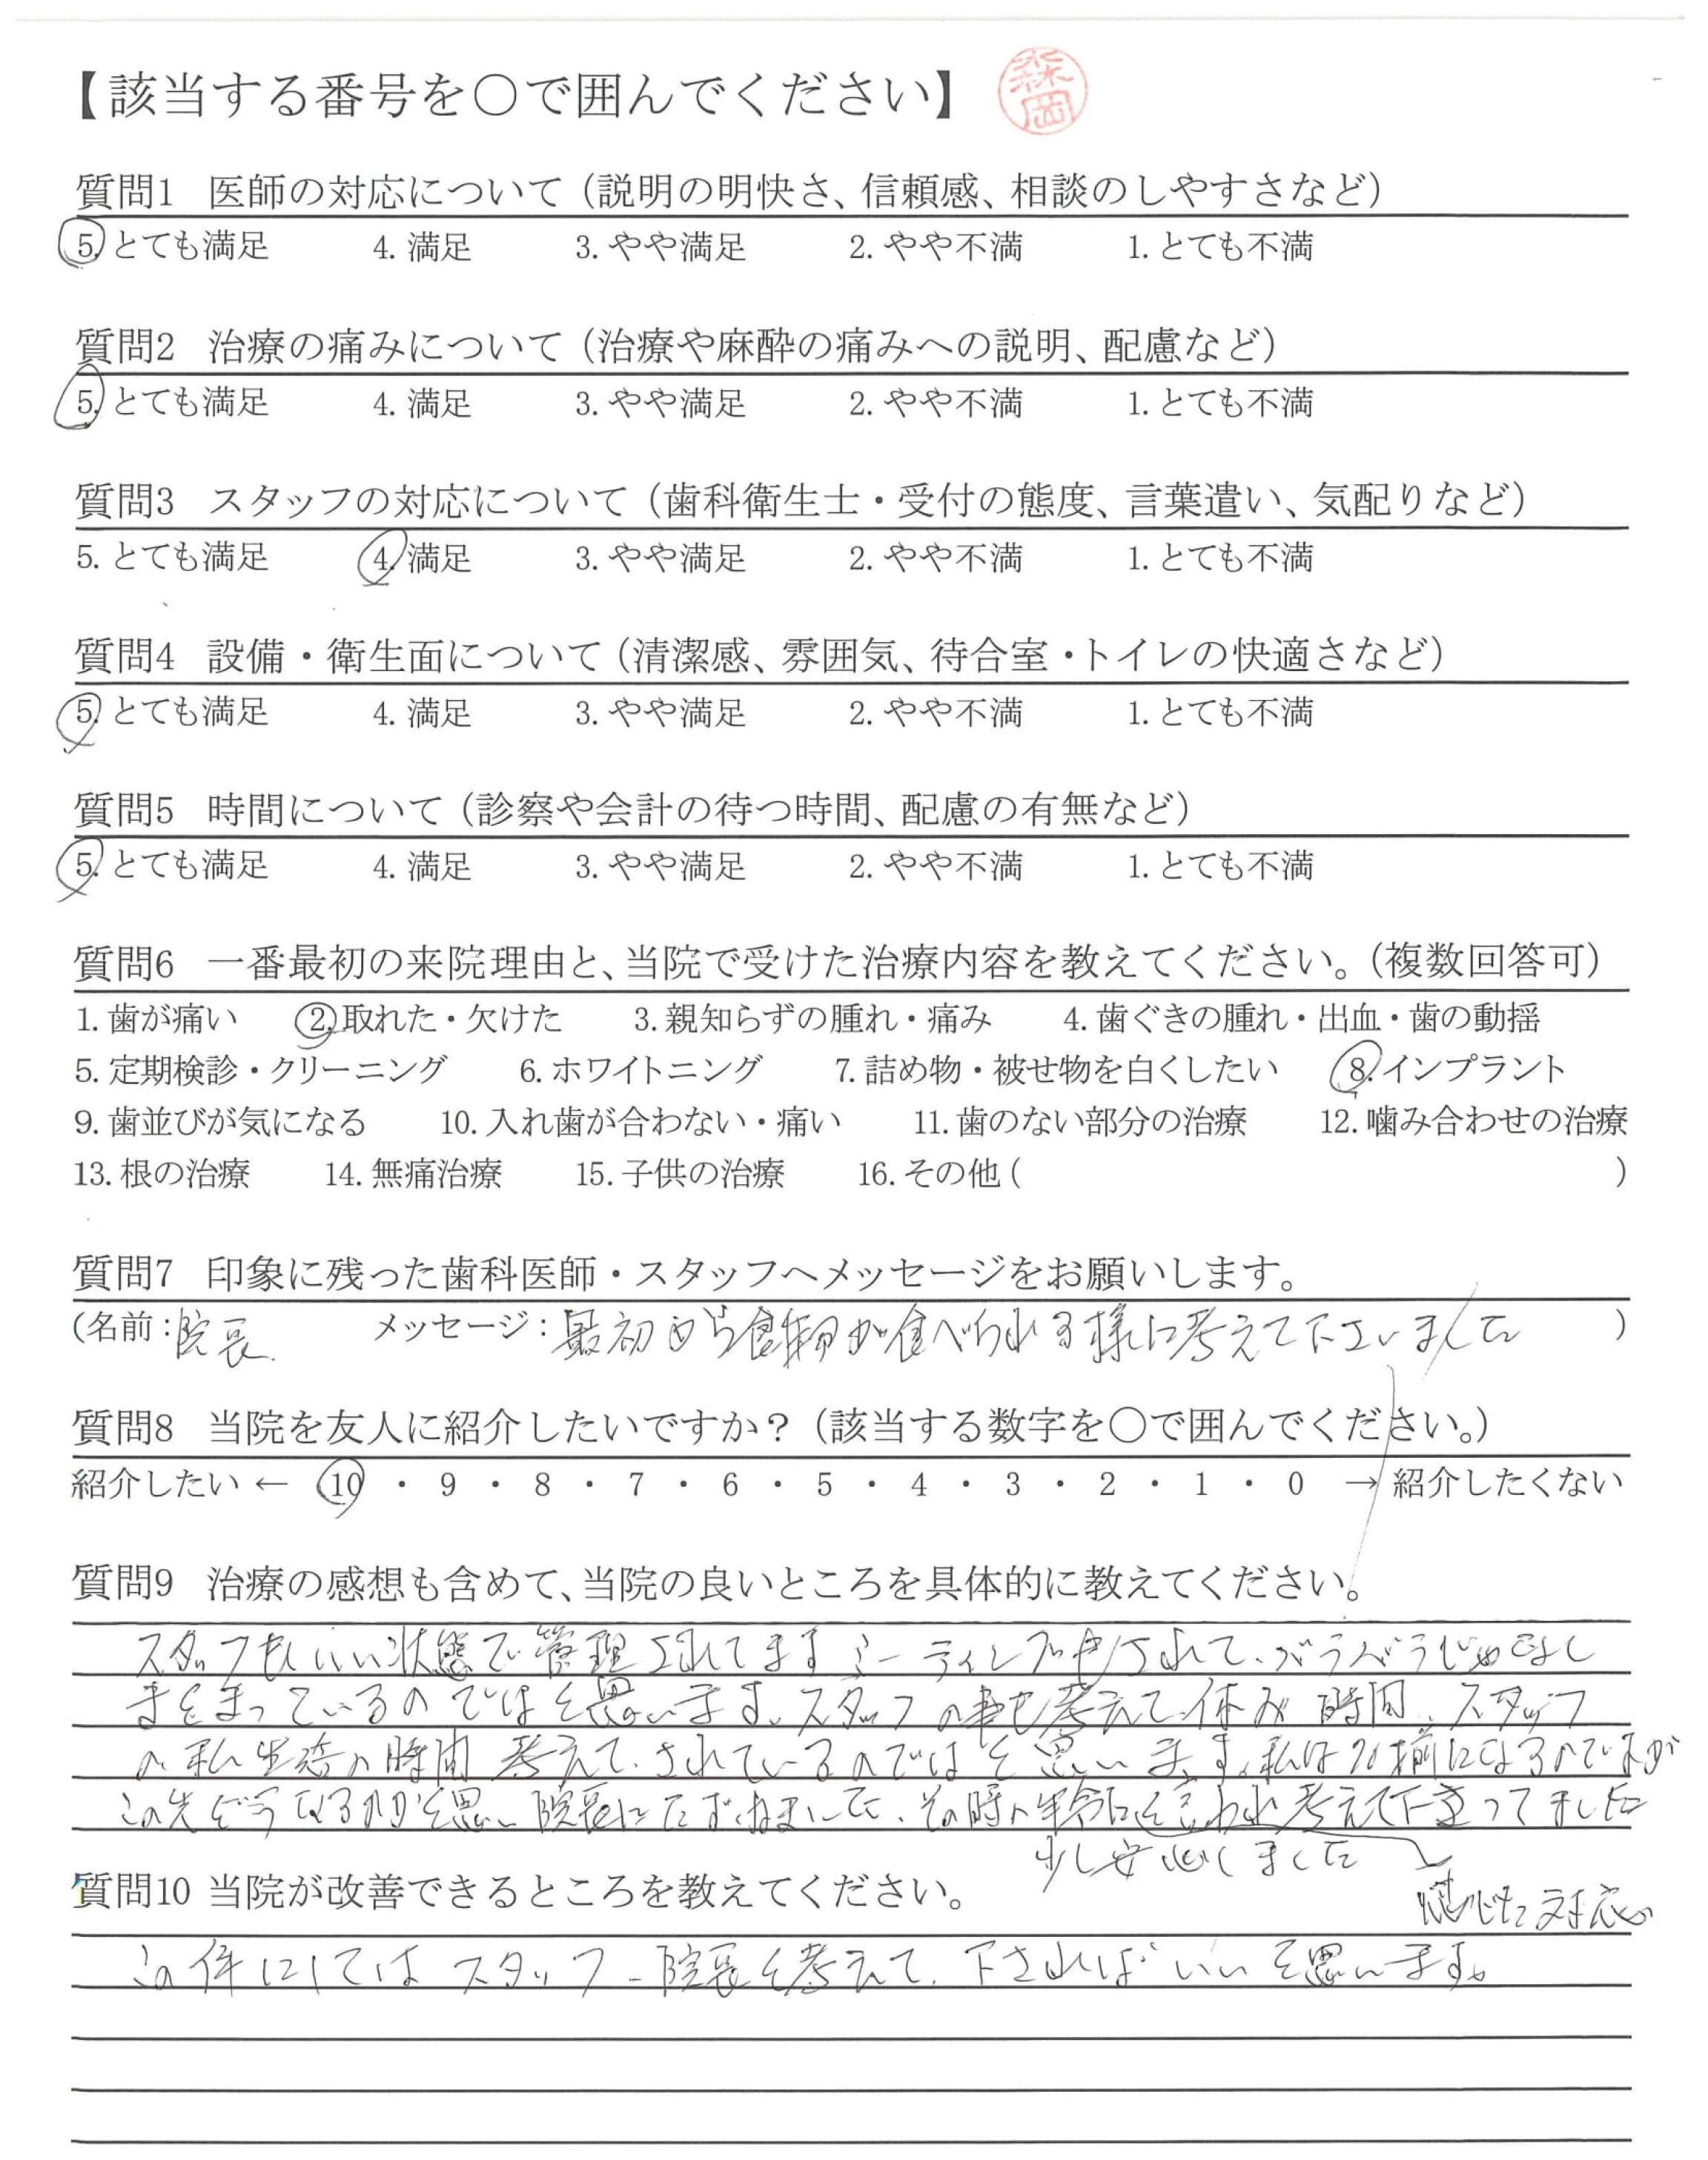 【該当する番号を○で囲んでください】 森岡
質問1 医師の対応について（説明の明快さ、信頼感、相談のしやすさなど）
5. とても満足 4. 満足 3. やや満足 2. やや不満 1. とても不満
質問2 治療の痛みについて（治療や麻酔の痛みへの説明、配慮など）
5. とても満足 4. 満足 3. やや満足 2. やや不満 1. とても不満
質問3 スタッフの対応について（歯科衛生士・受付の態度、言葉遣い、気配りなど）
5. とても満足 4. 満足 3. やや満足 2. やや不満 1. とても不満
質問4 設備・衛生面について（清潔感、雰囲気、待合室・トイレの快適さなど）
5. とても満足 4. 満足 3. やや満足 2. やや不満 1. とても不満
質問5 時間について（診察や会計の待つ時間、配慮の有無など）
5. とても満足 4. 満足 3. やや満足 2. やや不満 1. とても不満
質問6 一番最初の来院理由と、当院で受けた治療内容を教えてください。（複数回答可）
1. 歯が痛い 2. 取れた・欠けた 3. 親知らずの腫れ・痛み 4. 歯ぐきの腫れ・出血・歯の動揺
5. 定期検診・クリーニング 6. ホワイトニング 7. 詰め物・被せ物を白くしたい 8. インプラント
9. 歯並びが気になる 10. 入れ歯が合わない・痛い 11. 歯のない部分の治療 12. 噛み合わせの治療
13. 根の治療 14. 無痛治療 15. 子供の治療 16. その他（ ）
質問7 印象に残った歯科医師・スタッフへメッセージをお願いします。
（名前：院長 メッセージ：最初から食物が食べられる様に考えて下さいました ）
質問8 当院を友人に紹介したいですか？（該当する数字を○で囲んでください。）
紹介したい ← 10 ・ 9 ・ 8 ・ 7 ・ 6 ・ 5 ・ 4 ・ 3 ・ 2 ・ 1 ・ 0 → 紹介したくない
質問9 治療の感想も含めて、当院の良いところを具体的に教えてください。
スタッフもいい状態で管理されてます ミーティング されて、バラバラ
まとまっているのではと思います。スタッフの事も考えて休み時間、スタッフ
の私生活の時間考えて、されているのではと思います。私は 前になるのですが
この先どうなるのかと思い院長にたずねました、その時 年令 言われ考えて下さってました
少し安心しました
質問10 当院が改善できるところを教えてください。
対応
この件にしてはスタッフ－院長と考えて、下さればいいと思います。